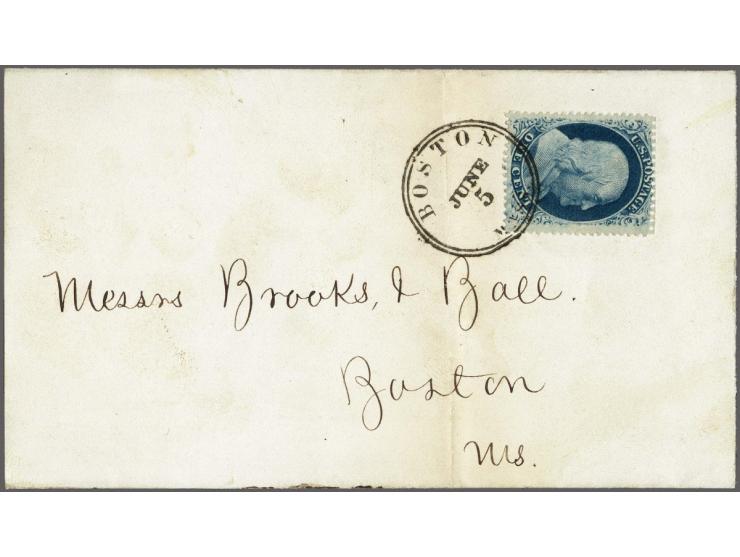 U.S. POSTAGE
ONE CENT
BOSTON
JUNE
5
Messrs Brooks, & Ball.
Boston
Ms.